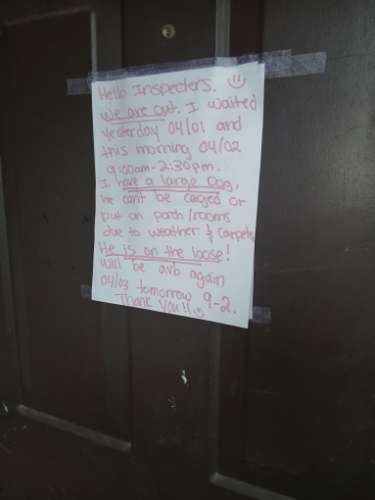 Hello Inspecters. ☺
We are out. I waited
yesterday 04/01 and
this morning 04/02
9:00am-2:30pm.
I have a large Dog,
he can't be caged or
put on porch/rooms
due to weather & carpets
He is on the loose!
Will be avb again
04/03 tomorrow 9-2.
Thank you!! ☺